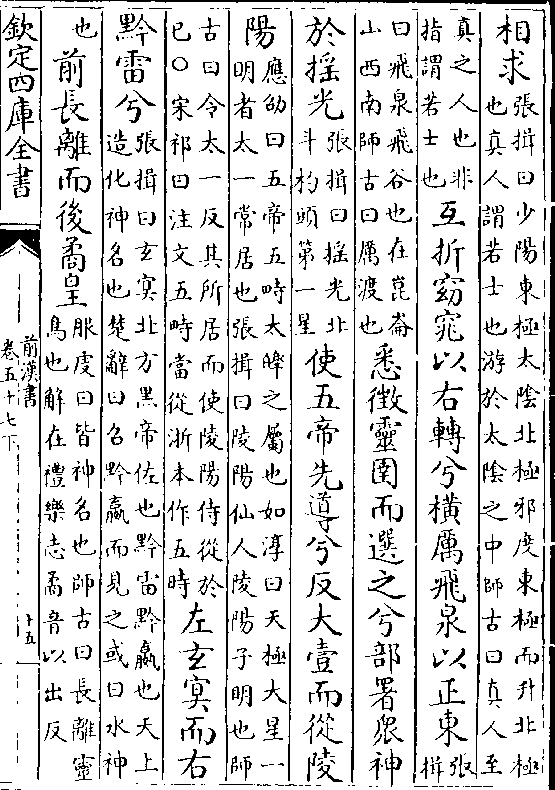 相求張揖曰少陽東極太陰北極邪度東極而升北極
也真人謂若士也游於太陰之中師古曰真人至
真之人也非
指謂若士也互折窈窕以右轉兮橫厲飛泉以正東張揖
曰飛泉飛谷也在崑崙
山西南師古曰厲渡也悉徵靈圉而選之兮部署衆神
於搖光張揖曰搖光北
斗杓頭第一星使五帝先導兮反大壹而從陵
陽應劭曰五帝五畤太皡之屬也如淳曰天極大星一
明者太一常居也張揖曰陵陽仙人陵陽子明也師
古曰令太一反其所居而使陵陽侍從於
已○宋祁曰注文五時當從浙本作五畤左玄冥而右
黔雷兮張揖曰玄冥北方黑帝佐也黔雷黔嬴也天上
造化神名也楚辭曰召黔嬴而見之或曰水神
也前長離而後矞皇服虔曰皆神名也師古曰長離靈
鳥也解在禮樂志矞音以出反
欽定四庫全書
前漢書
卷五十七下
十五